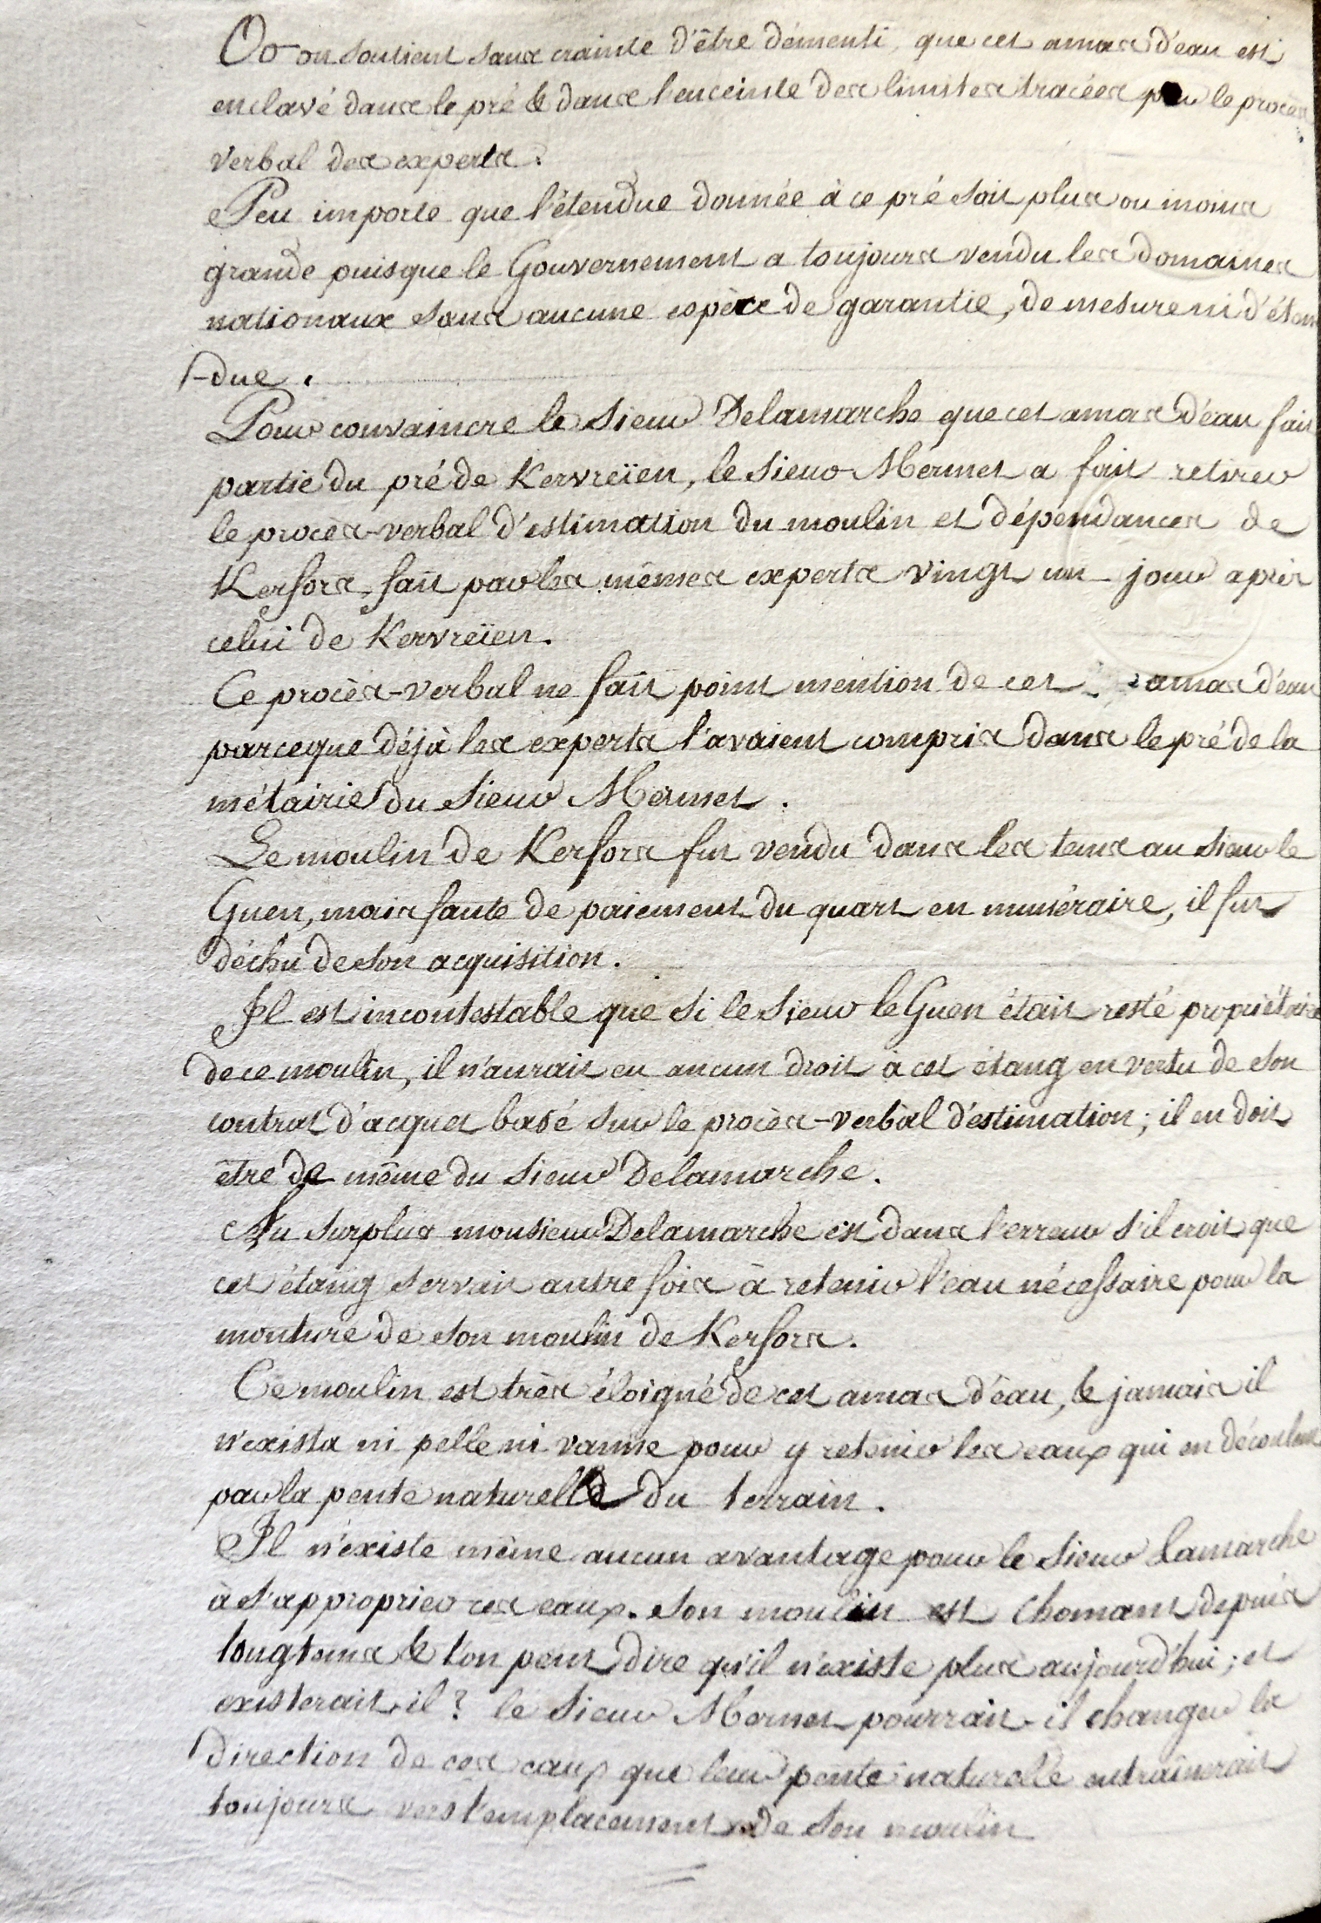 Or on soutient sans crainte d'être démenti, que cet amas d'eau est
enclavé dans le pré & dans l'enceinte des limites tracées par le procès
verbal des experts.
Peu importe que l'étendue donnée à ce pré soit plus ou moins
grande puisque le Gouvernement a toujours vendu les domaines
nationaux sans aucune espèce de garantie, de mesure ni d'éten
-due.
Pour convaincre le sieur Delamarche que cet amas d'eau fait
partie du pré de Kervreïen, le sieur Mermet a fait retirer
le procès-verbal d'estimation du moulin et dépendances de
Kerfors, fait par les mêmes experts vingt un jour après
celui de Kervreïen.
Ce procès-verbal ne fait point mention de cet amas d'eau
parceque déjà les experts l'avaient compris dans le pré de la
métairie du sieur Mermet.
Le moulin de Kerfors fut vendu dans les tems au sieur le
Guen, mais faute de paiement du quart en numéraire, il fut
déchu de son acquisition.
Il est incontestable que si le sieur le Guen était resté propriétaire
de ce moulin, il n'aurait eu aucun droit à cet étang en vertu de son
contrat d'acquet basé sur le procès-verbal d'estimation; il en doit
etre de même du sieur Delamarche.
Au surplus monsieur Delamarche est dans l'erreur s'il croit que
cet étang servait autrefois à retenir l'eau nécessaire pour la
mouture de son moulin de Kerfors.
Ce moulin est très éloigné de cet amas d'eau, & jamais il
n'exista ni pelle ni vanne pour y retenir les eaux qui en découlent
par la pente naturelle du terrain.
Il n'existe même aucun avantage pour le sieur Lamarche
à s'approprier ces eaux. son moulin est chomant depuis
longtems & l'on peut dire qu'il n'existe plus aujourd'hui; et
existerait-il? le sieur Mermet pourrait-il changer la
direction de ces eaux que leur pente naturelle entraînerait
toujours vers l'emplacement de son moulin